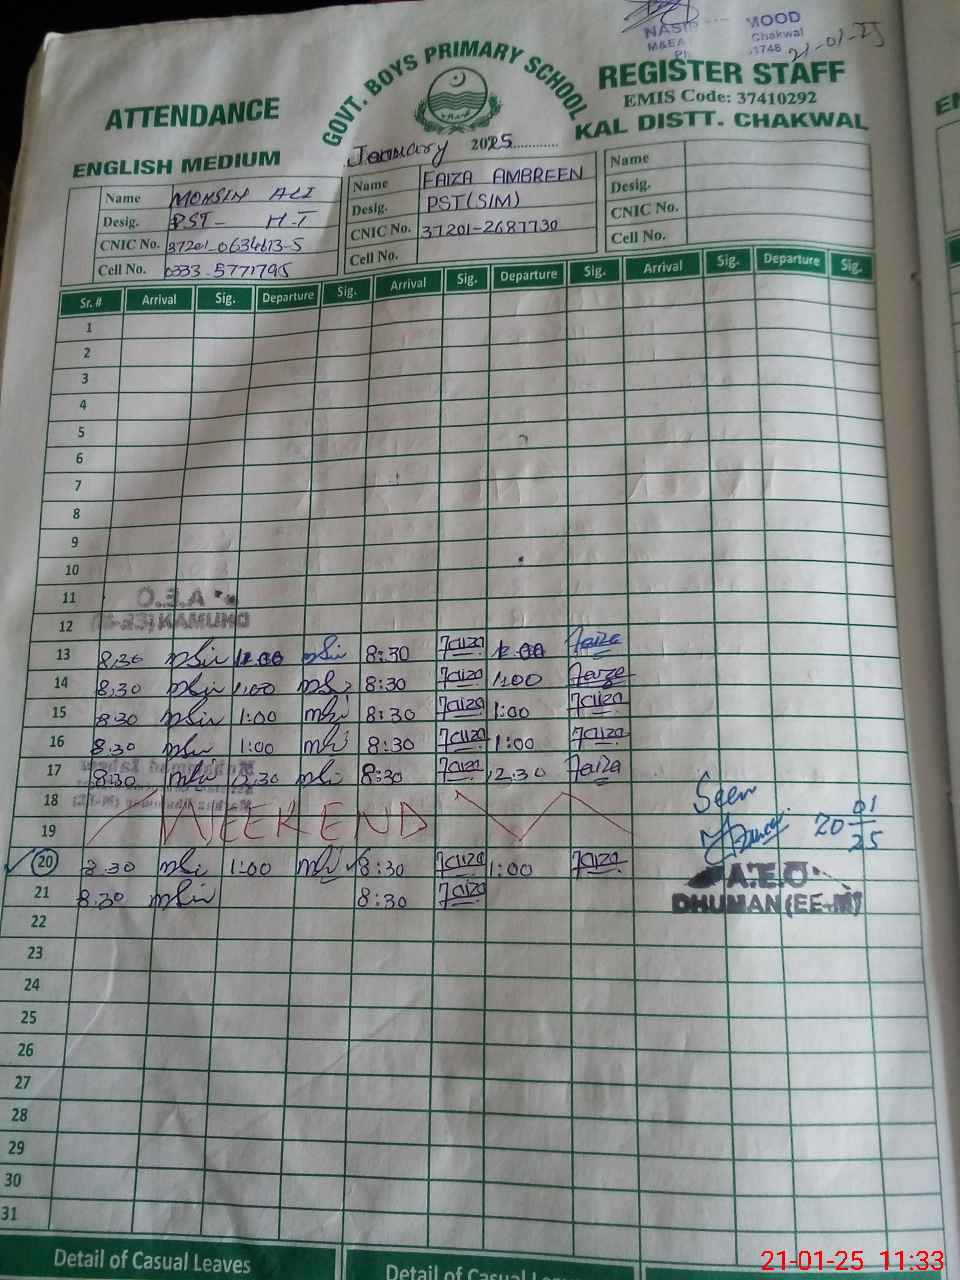 NASIR MOOD
M&EA Chakwal
1748 21-01-25
ATTENDANCE GOVT. BOYS PRIMARY SCHOOL REGISTER STAFF
EMIS Code: 37410292
ENGLISH MEDIUM January 2025 KAL DISTT. CHAKWAL
Name MOHSIN ALI Name FAIZA AMBREEN Name
Desig. PST - H-T Desig. PST(SIM) Desig.
CNIC No. 37201-0634613-5 CNIC No. 37201-2687730 CNIC No.
Cell No. 0333-5771795 Cell No. Cell No.
Sr. # Arrival Sig. Departure Sig. Arrival Sig. Departure Sig. Arrival Sig. Departure Sig.
1
2
3
4
5
6
7
8
9
10
11
12
13 8:30 8:30 Faiza Faiza
14 8:30 1:00 8:30 Faiza 1:00 Faiza
15 8:30 1:00 8:30 Faiza 1:00 Faiza
16 8:30 1:00 8:30 Faiza 1:00 Faiza
17 8:30 12:30 8:30 Faiza 12:30 Faiza
18
19 WEEKEND
Seen
20 01 25
20 8:30 1:00 8:30 Faiza 1:00 Faiza
A.E.O
DHUMAN (EE-M)
21 8:30 8:30 Faiza
22
23
24
25
26
27
28
29
30
31
Detail of Casual Leaves Detail of Casual
21-01-25 11:33